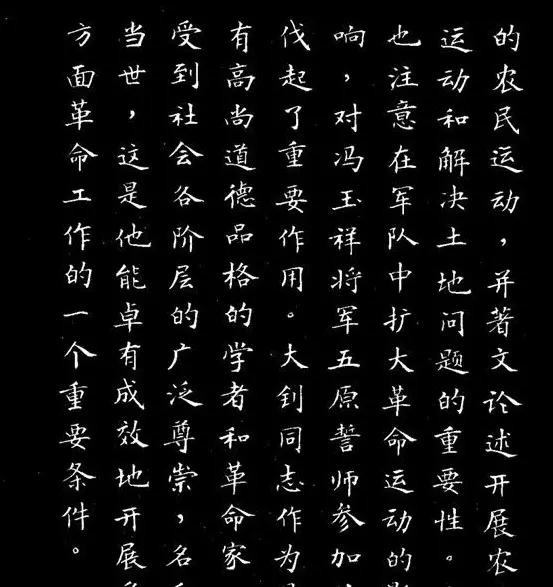 的农民运动，并著文论述开展农
运动和解决土地问题的重要性。
也注意在军队中扩大革命运动的
响，对冯玉祥将军五原誓师参加
伐起了重要作用。大钊同志作为
有高尚道德品格的学者和革命家
受到社会各阶层的广泛尊崇，名
当世，这是他能卓有成效地开展
方面革命工作的一个重要条件。